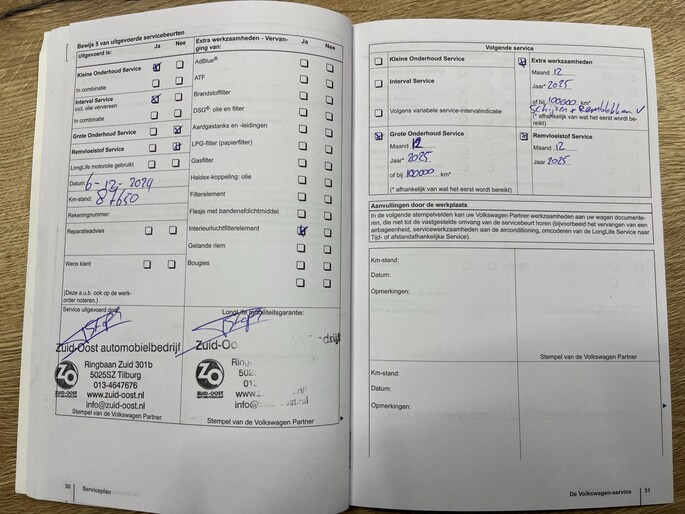 Bewijs 5 van uitgevoerde servicebeurten
Uitgevoerd is: Ja Nee
Kleine Onderhoud Service
In combinatie
Interval Service
incl. olie verversen
In combinatie
Grote Onderhoud Service
Remvloeistof Service
LongLife motorolie gebruikt
Datum: 6-12-2024
Km-stand: 87650
Rekeningnummer:
Reparatieadvies
Wens klant
(Deze a.u.b. ook op de werk-
order noteren.)
Extra werkzaamheden - Vervan-
ging van: Ja Nee
AdBlue®
ATF
Brandstoffilter
DSG®: olie en filter
Aardgastanks en -leidingen
LPG-filter (papierfilter)
Gasfilter
Haldex-koppeling: olie
Filterelement
Flesje met bandenafdichtmiddel
Interieurluchtfilterelement
Getande riem
Bougies
Service uitgevoerd door:
Zuid-Oost automobielbedrijf
ZO
ZUID-OOST
Ringbaan Zuid 301b
5025SZ Tilburg
013-4647676
www.zuid-oost.nl
info@zuid-oost.nl
Stempel van de Volkswagen Partner
LongLife mobiliteitsgarantie:
Zuid-Oo drijf
ZO
ZUID-OOST
Stempel van de Volkswagen Partner
30 Serviceplan
Volgende service
Kleine Onderhoud Service
Interval Service
Volgens variabele service-intervalindicatie
Extra werkzaamheden
Maand 12
Jaar* 2025
of bij 100000 km*
Schijven + Remblokken V
(* afhankelijk van wat het eerst wordt be-
reikt)
Grote Onderhoud Service
Maand 12
Jaar* 2025
of bij 100000 km*
(* afhankelijk van wat het eerst wordt bereikt)
Remvloeistof Service
Maand 12
Jaar 2025
Aanvullingen door de werkplaats
In de volgende stempelvelden kan uw Volkswagen Partner werkzaamheden aan uw wagen documente-
ren, die niet tot de vastgestelde omvang van de servicebeurt horen (bijvoorbeeld het vervangen van een
airbageenheid, servicewerkzaamheden aan de airconditioning, omcoderen van de LongLife Service naar
Tijd- of afstandafhankelijke Service)
Km-stand:
Datum:
Opmerkingen:
Stempel van de Volkswagen Partner
Km-stand:
Datum:
Opmerkingen:
Stempel van de Volkswagen Partner
De Volkswagen-service 31